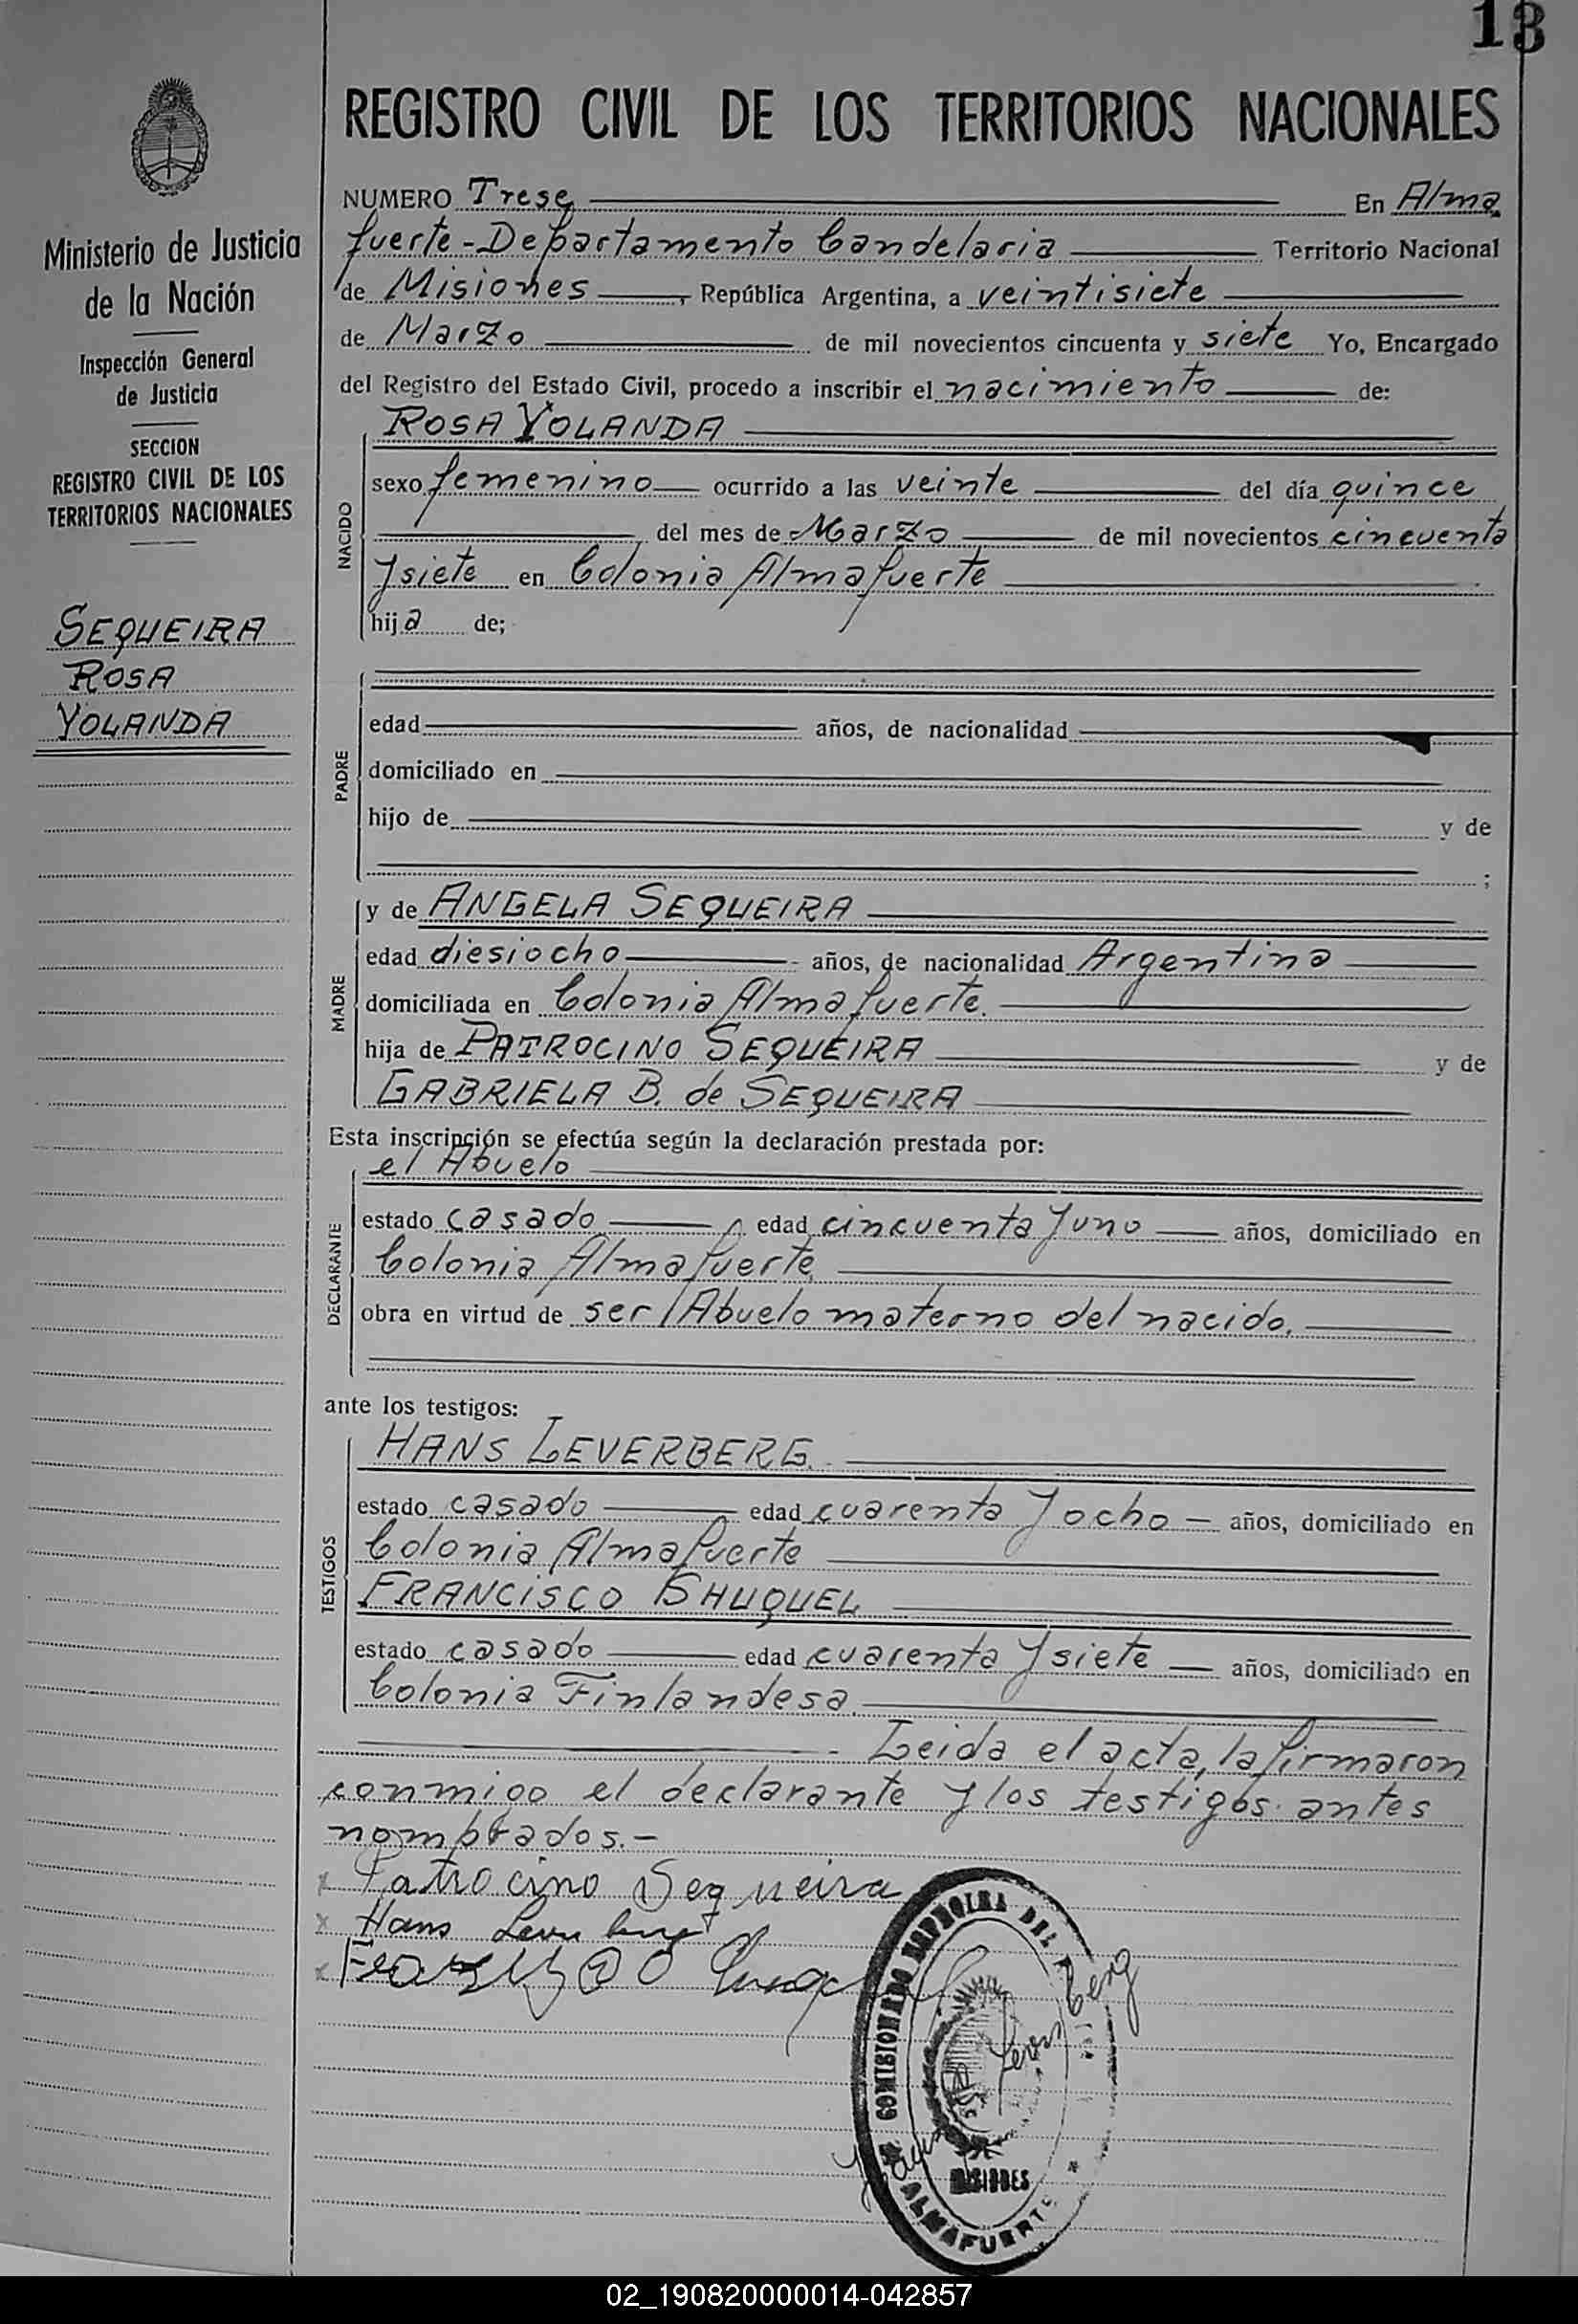 13
REGISTRO CIVIL DE LOS TERRITORIOS NACIONALES
Ministerio de Justicia
de la Nación
Inspección General
de Justicia
SECCION
REGISTRO CIVIL DE LOS
TERRITORIOS NACIONALES
SEQUEIRA
ROSA
YOLANDA
NUMERO Trese En Alma
fuerte-Departamento Candelaria Territorio Nacional
de Misiones, República Argentina, a veintisiete
de Marzo de mil novecientos cincuenta y siete Yo, Encargado
del Registro del Estado Civil, procedo a inscribir el nacimiento de:
ROSA YOLANDA
NACIDO
sexo femenino ocurrido a las veinte del día quince
del mes de Marzo de mil novecientos cincuenta
y siete en Colonia Almafuerte
hija de;
PADRE
edad años, de nacionalidad
domiciliado en
hijo de y de
;
MADRE
y de ANGELA SEQUEIRA
edad diesiocho años, de nacionalidad Argentina
domiciliada en Colonia Almafuerte.
hija de PATROCINO SEQUEIRA y de
GABRIELA B. de SEQUEIRA
Esta inscripción se efectúa según la declaración prestada por:
el Abuelo
DECLARANTE
estado casado edad cincuenta y uno años, domiciliado en
Colonia Almafuerte
obra en virtud de ser Abuelo materno del nacido.
ante los testigos:
TESTIGOS
HANS LEVERBERG.
estado casado edad cuarenta y ocho años, domiciliado en
Colonia Almafuerte
FRANCISCO SHUQUEL
estado casado edad cuarenta y siete años, domiciliado en
Colonia Finlandesa.
Leida el acta, la firmaron
conmigo el declarante y los testigos antes
nombrados.-
x Patrocino Sequeira
x Hans
x
COMISIONADO ESPECIAL DEL
MISIONES
ALMAFUERTE
02_190820000014-042857